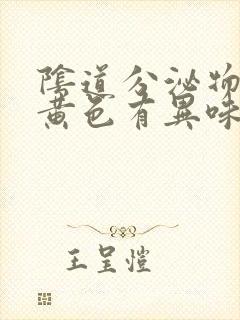 陰道分泌物
黄色有異味
王呈愷